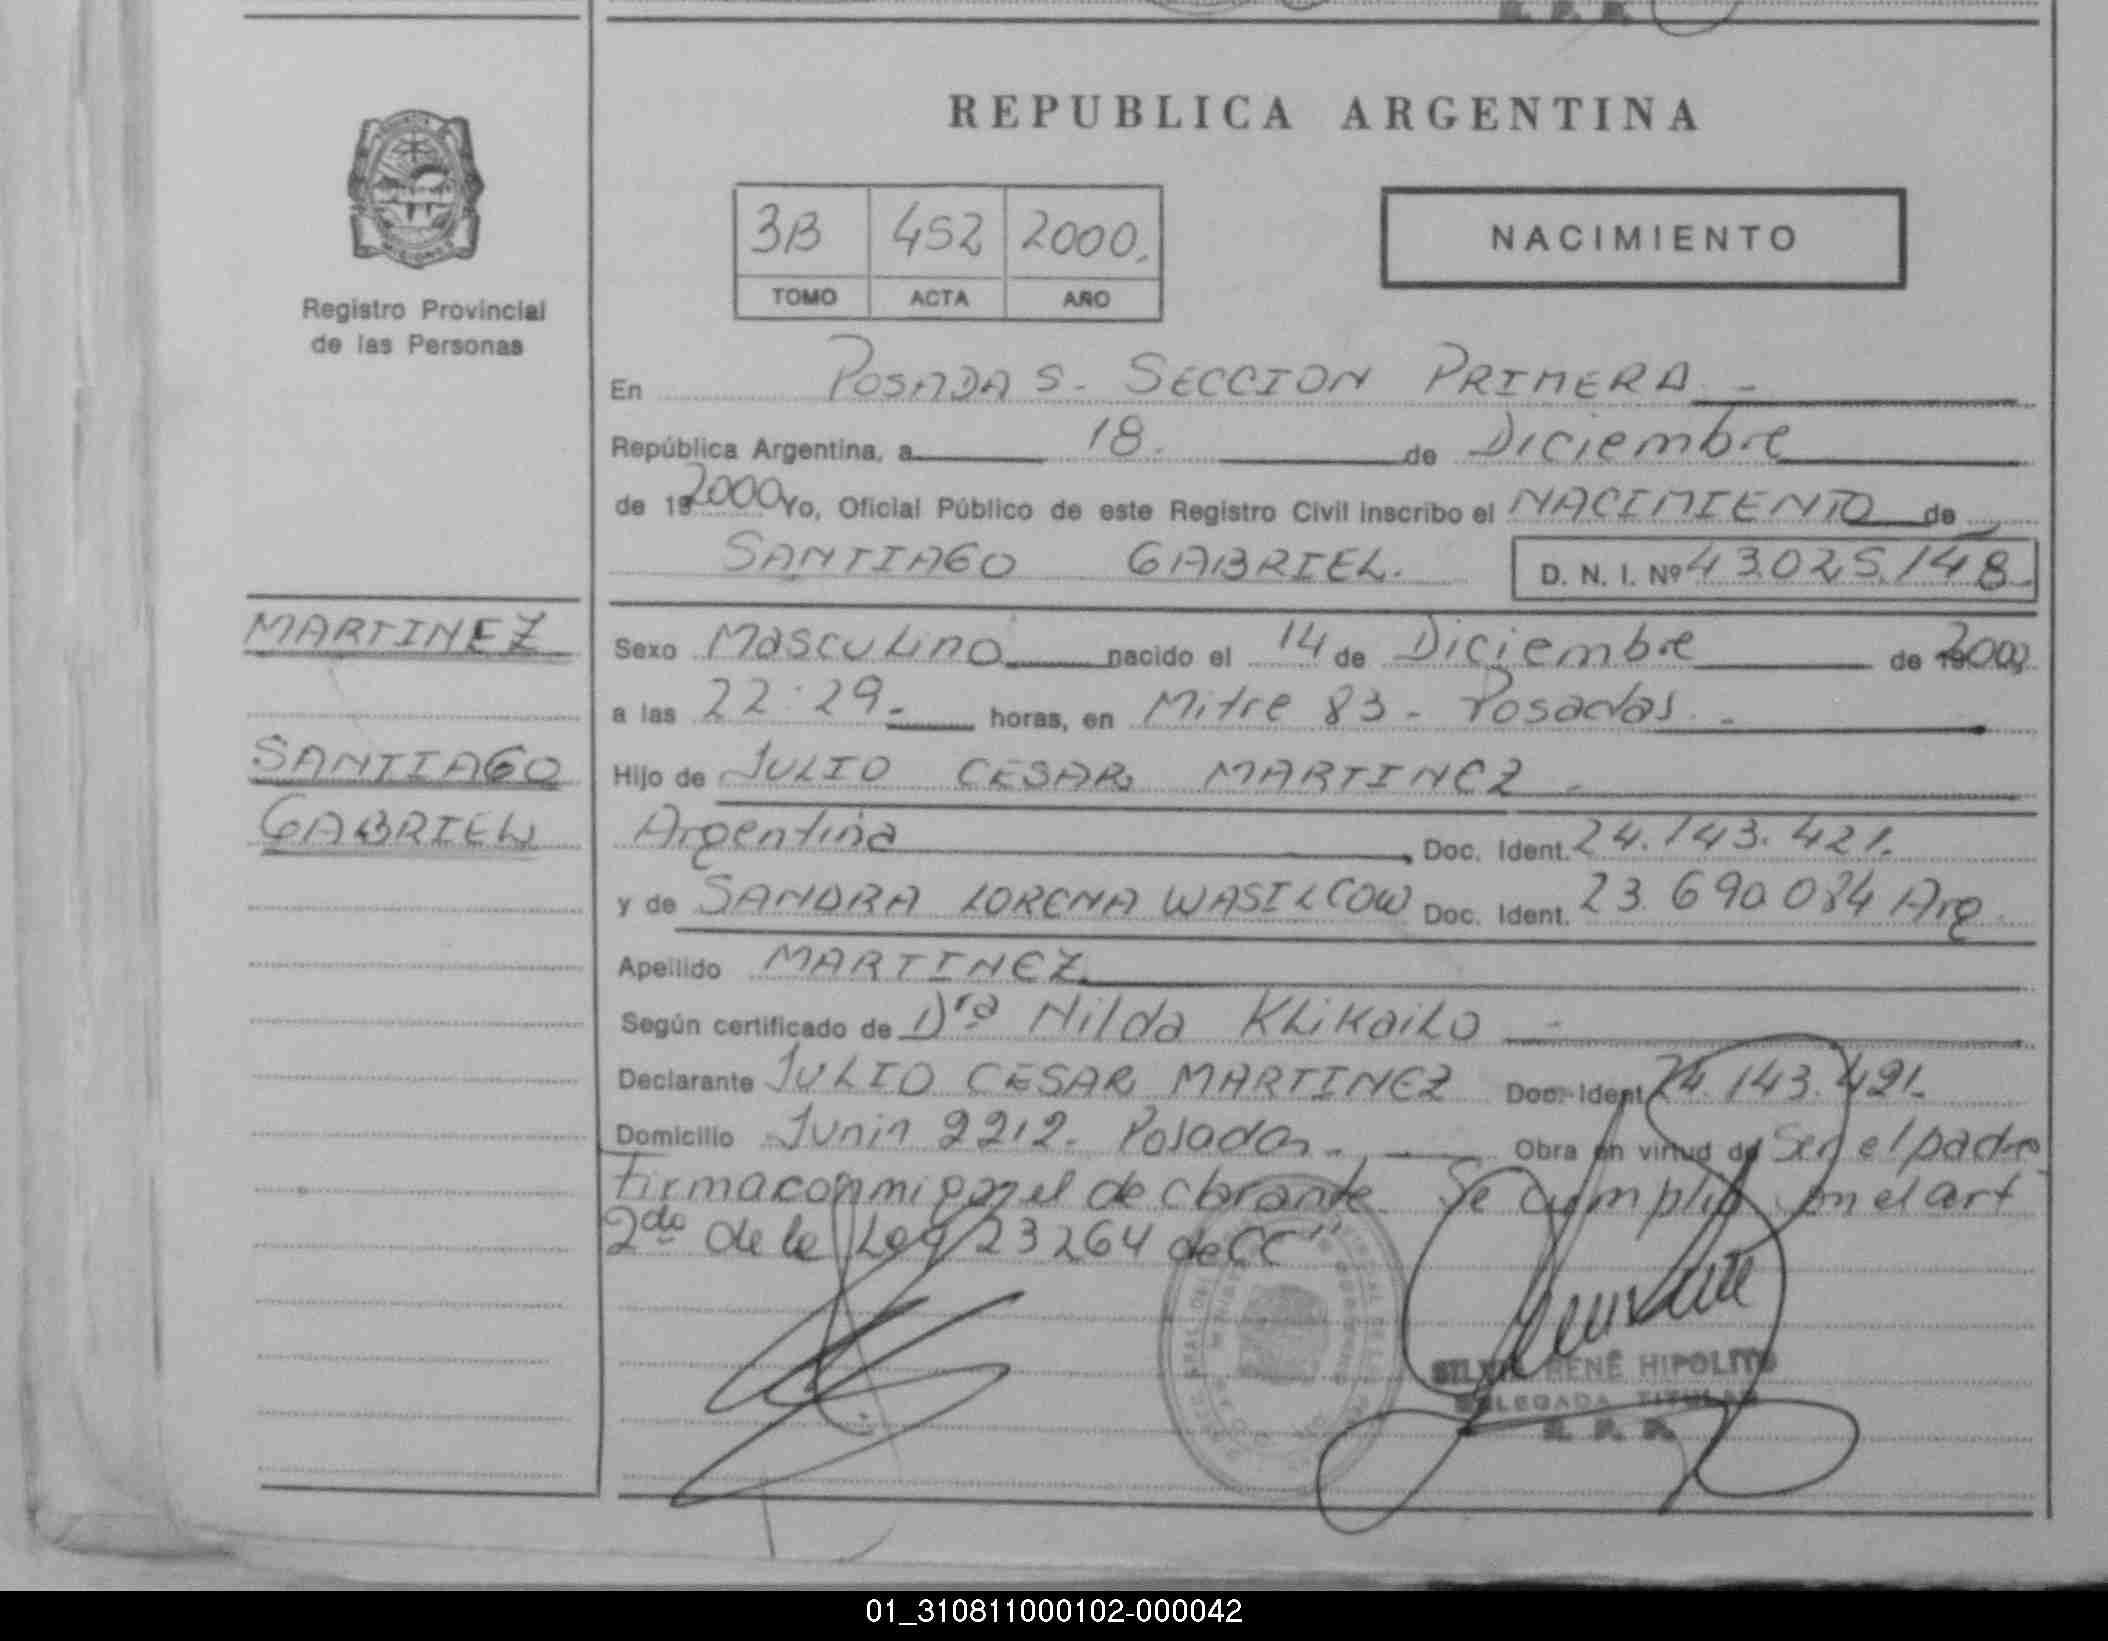 REPUBLICA ARGENTINA
3B 452 2000.
TOMO ACTA AÑO
NACIMIENTO
Registro Provincial
de las Personas
En POSADAS. SECCION PRIMERA.-
República Argentina, a 18. de Diciembre
de 19 2000 Yo, Oficial Público de este Registro Civil inscribo el NACIMIENTO de
SANTIAGO GABRIEL. D. N. I. Nº 43.025.148
MARTINEZ
SANTIAGO
GABRIEL
Sexo Masculino nacido el 14 de Diciembre de 2000
a las 22:29.- horas, en Mitre 83 - Posadas.-
Hijo de JULIO CESAR MARTINEZ.-
Argentina Doc. Ident. 24.143.421.
y de SANDRA LORENA WASILCOW Doc. Ident. 23.690.084 Arg.
Apellido MARTINEZ
Según certificado de Drª Nilda Klikailo -
Declarante JULIO CESAR MARTINEZ Doc. Ident. 24.143.421.
Domicilio Junin 2212. Posadas.- Obra en virtud de Ser el padre
firma conmigo el declarante. Se cumplió con el art
2do de la Ley 23264 de CC"
SILVIA RENÉ HIPOLITO
DELEGADA TITULAR
R. P. P.
01_310811000102-000042